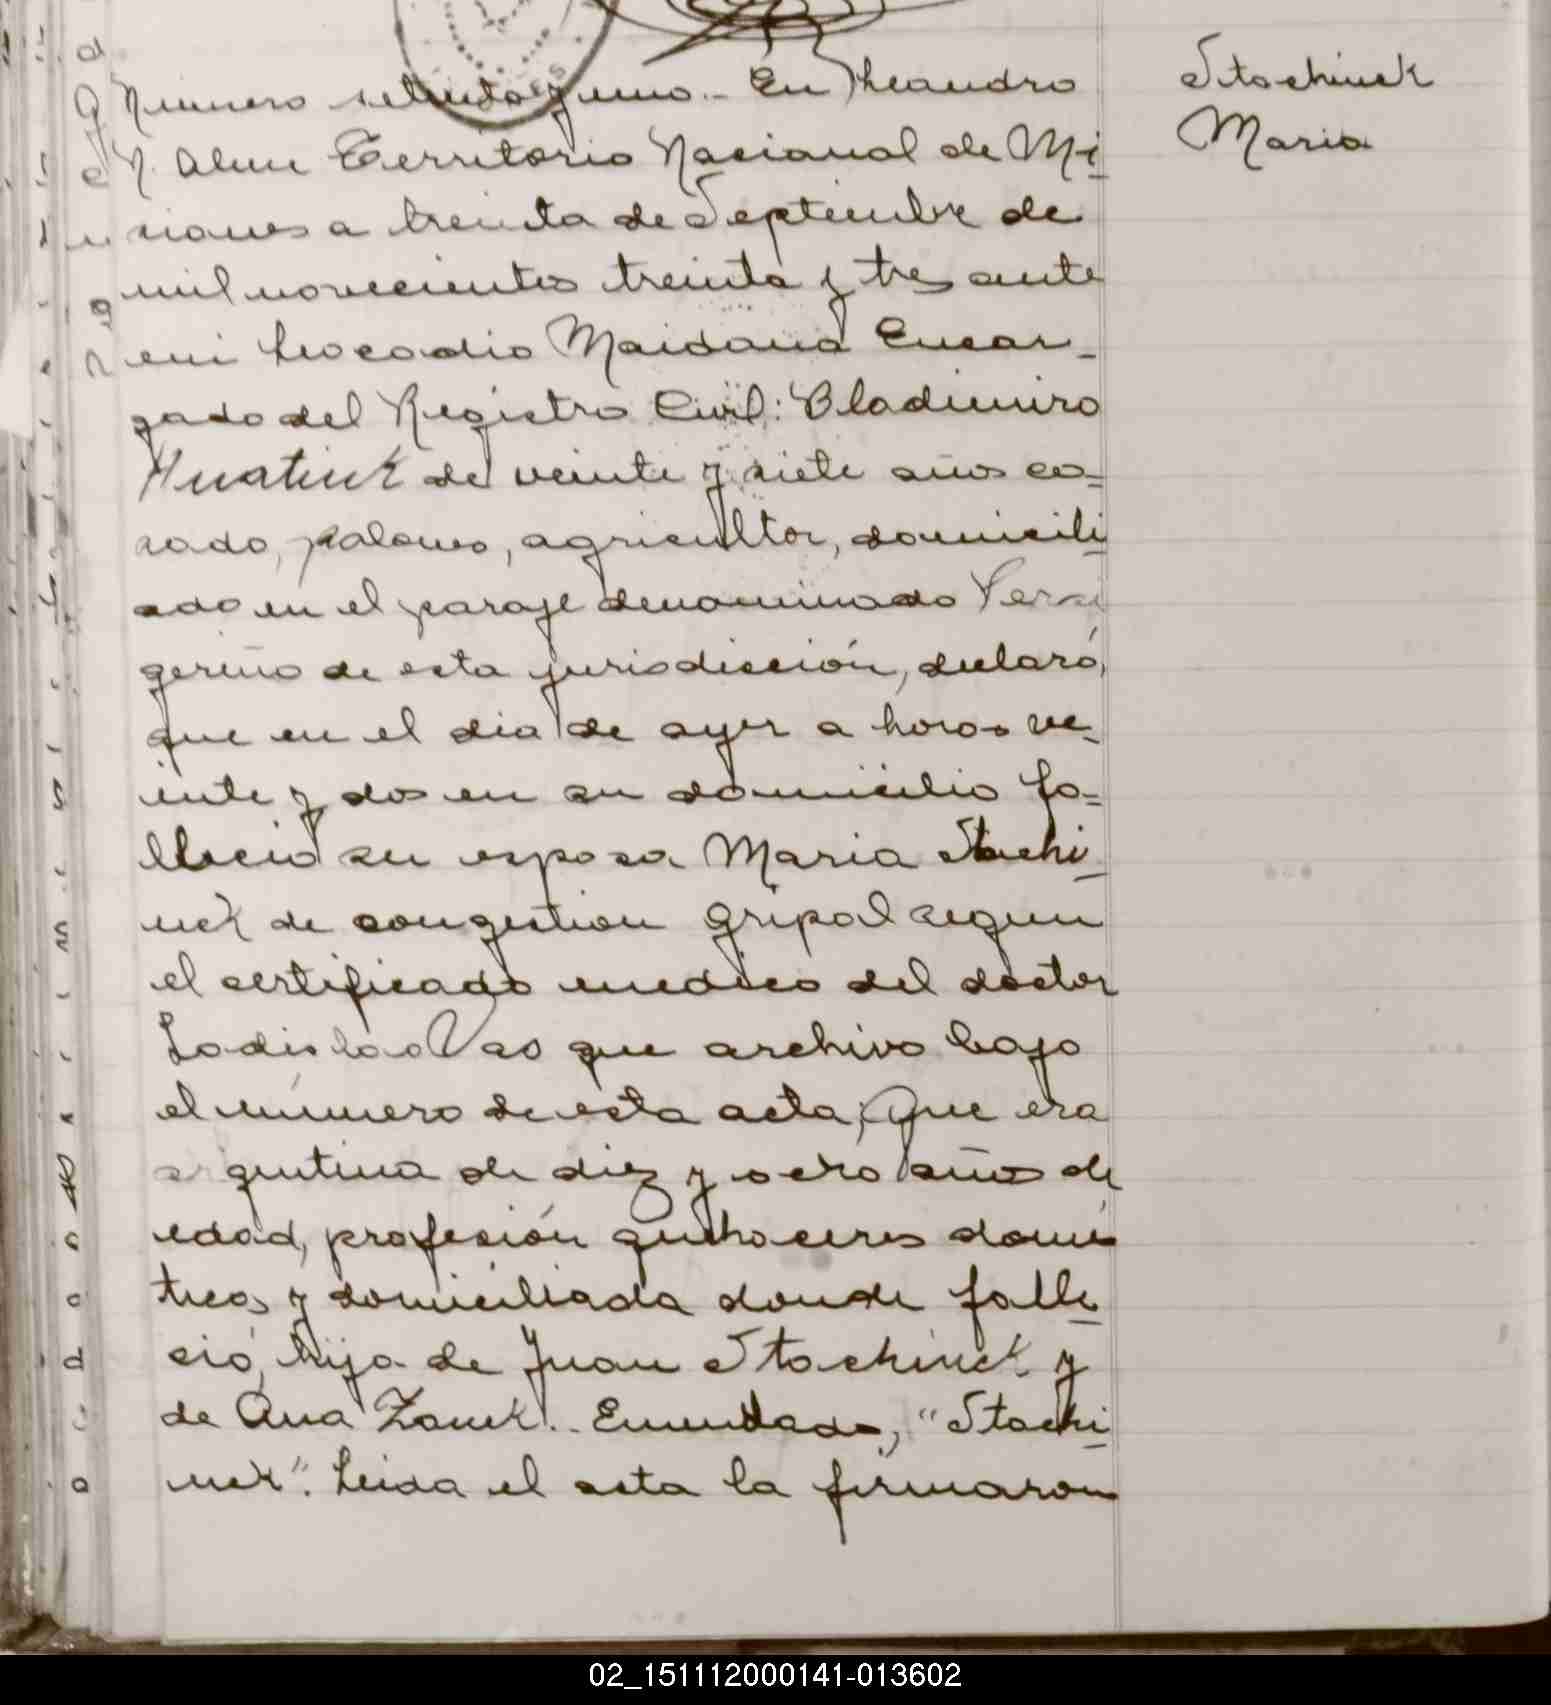 Stachinck
Maria
Numero setenta y uno.- En Leandro
N. Alem Territorio Nacional de Mi-
siones a treinta de Septiembre de
mil novecientos treinta y tres ante
mi Leocadio Maidana Encar-
gado del Registro Civil: Bladimiro
de veinte y siete años ca=
sado, polaco, agricultor, domicili
ado en el paraje denominado
de esta jurisdicción, declaró,
que en el dia de ayer a horas ve-
inte y dos en su domicilio fa=
lleció su esposa Maria Stachi-
nck de congestion gripal segun
el certificado medico del doctor
Ladislao Vas que archivo bajo
el número de esta acta, que era
argentina de diez y ocho años de
edad, profesión quehaceres domés
ticos y domiciliada donde falle-
ció, hija de Juan Stachinck y
de Ana Zanek.. Enmendado, "Stachi-
nck". Leida el acta la firmaron
02_151112000141-013602